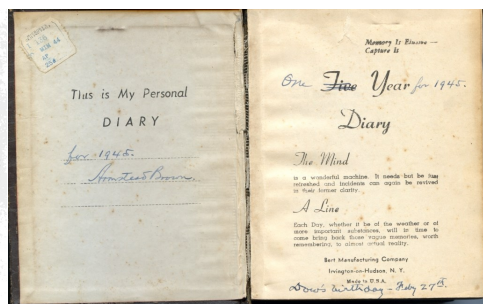 This is My Personal
DIARY
for 1945.
Memory Is Elusive —
Capture it
One Five Year for 1945.
Diary
The Mind
is a wonderful machine. It needs but be just
refreshed and incidents can again be revived
in their former clarity.
A Line
Each Day, whether it be of the weather or of
more important substances, will in time to
come bring back those vague memories, worth
remembering, to almost actual reality.
Bert Manufacturing Company
Irvington-on-Hudson, N. Y.
Made in U.S.A.
Dow's birthday - Feby 27th.